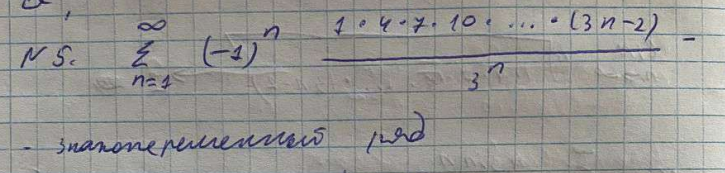 N 5. ∞ Σ n=1 (-1)^n (1·4·7·10· ... ·(3n-2))/3^n -
- знакопеременный ряд